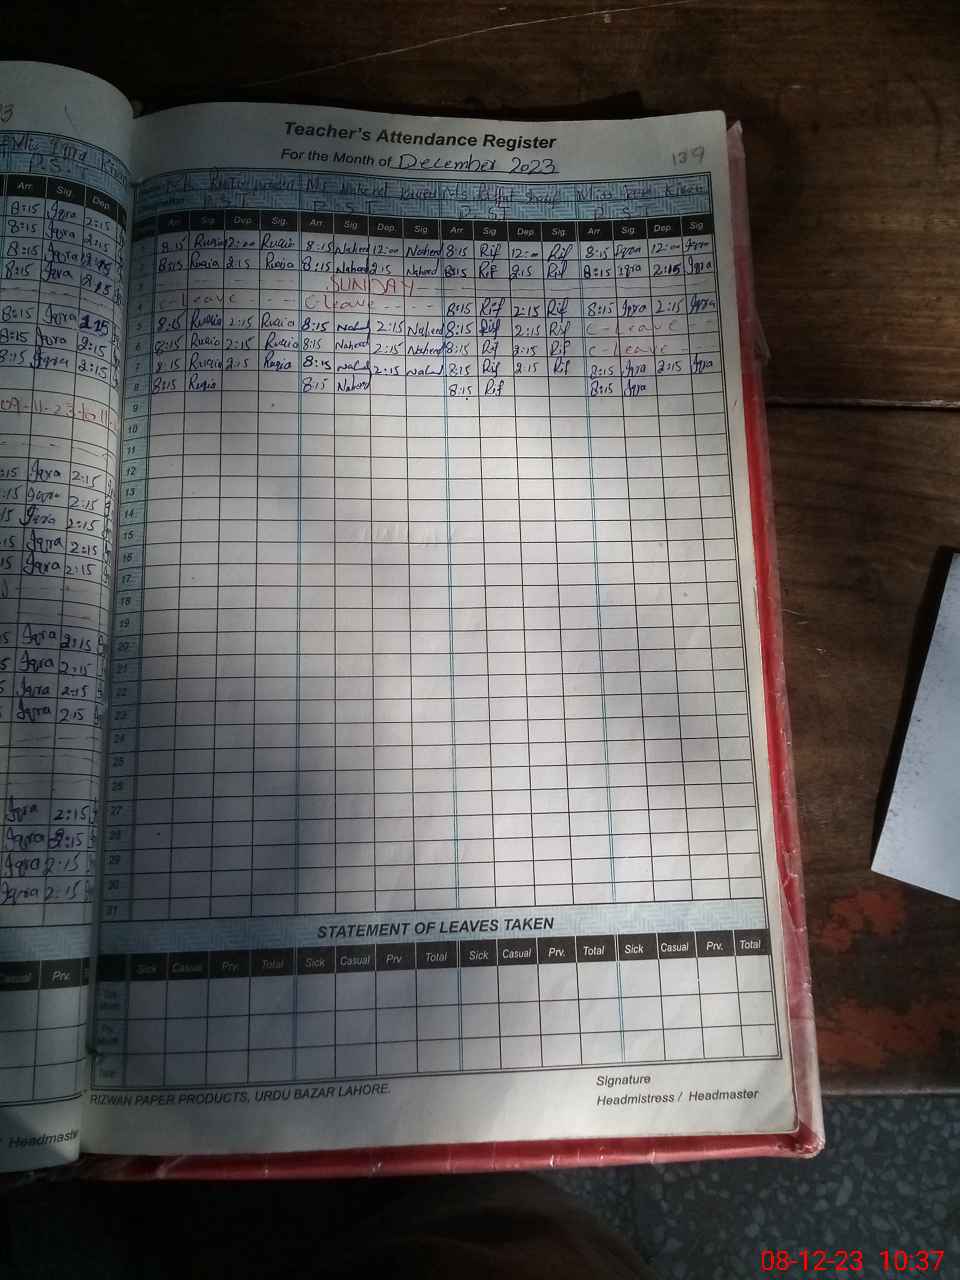 Teacher's Attendance Register
For the Month of December 2023
139
P.S.T P.S.T P.S.T P.S.T
Arr Sig. Dep. Sig. Arr Sig. Dep. Sig. Arr Sig. Dep. Sig. Arr Sig. Dep. Sig
8:15 Ruqia 12:00 Ruqia 8:15 Naheed 12:00 Naheed 8:15 Rif 12:00 Rif 8:15 Iqra 12:00 Iqra
8:15 Ruqia 2:15 Ruqia 8:15 Naheed 2:15 Naheed 8:15 Rif 2:15 Rif 8:15 Iqra 2:15 Iqra
SUNDAY
4 C-leave C leave 8:15 Rif 2:15 Rif 8:15 Iqra 2:15 Iqra
5 8:15 Ruqia 2:15 Ruqia 8:15 Naheed 2:15 Naheed 8:15 Rif 2:15 Rif C-Leave
6 8:15 Ruqia 2:15 Ruqia 8:15 Naheed 2:15 Naheed 8:15 Rif 2:15 Rif C-leave
7 8:15 Ruqia 2:15 Ruqia 8:15 Naheed 2:15 Naheed 8:15 Rif 2:15 Rif 8:15 Iqra 2:15 Iqra
8 8:15 Ruqia 8:15 Naheed 8:15 Rif 8:15 Iqra
9
10
11
12
13
14
15
16
17
18
19
20
21
22
23
24
25
26
27
28
29
30
31
STATEMENT OF LEAVES TAKEN
Sick Casual Prv. Total Sick Casual Prv Total Sick Casual Prv. Total Sick Casual Prv. Total
RIZWAN PAPER PRODUCTS, URDU BAZAR LAHORE.
Signature
Headmistress / Headmaster
P.S.T
Arr Sig. Dep.
8:15 Iqra 2:15
8:15 Iqra 2:15
8:15 Iqra 2:15
8:15 Iqra 2:15
8:15 Iqra 2:15
8:15 Iqra 2:15
8:15 Iqra 2:15
Iqra 2:15
Iqra 2:15
Iqra 2:15
Iqra 2:15
Iqra 2:15
Iqra 2:15
Iqra 2:15
Iqra 2:15
Iqra 2:15
Iqra 2:15
Iqra 2:15
Iqra 2:15
Iqra 2:15
Casual Prv.
/ Headmaster
08-12-23 10:37